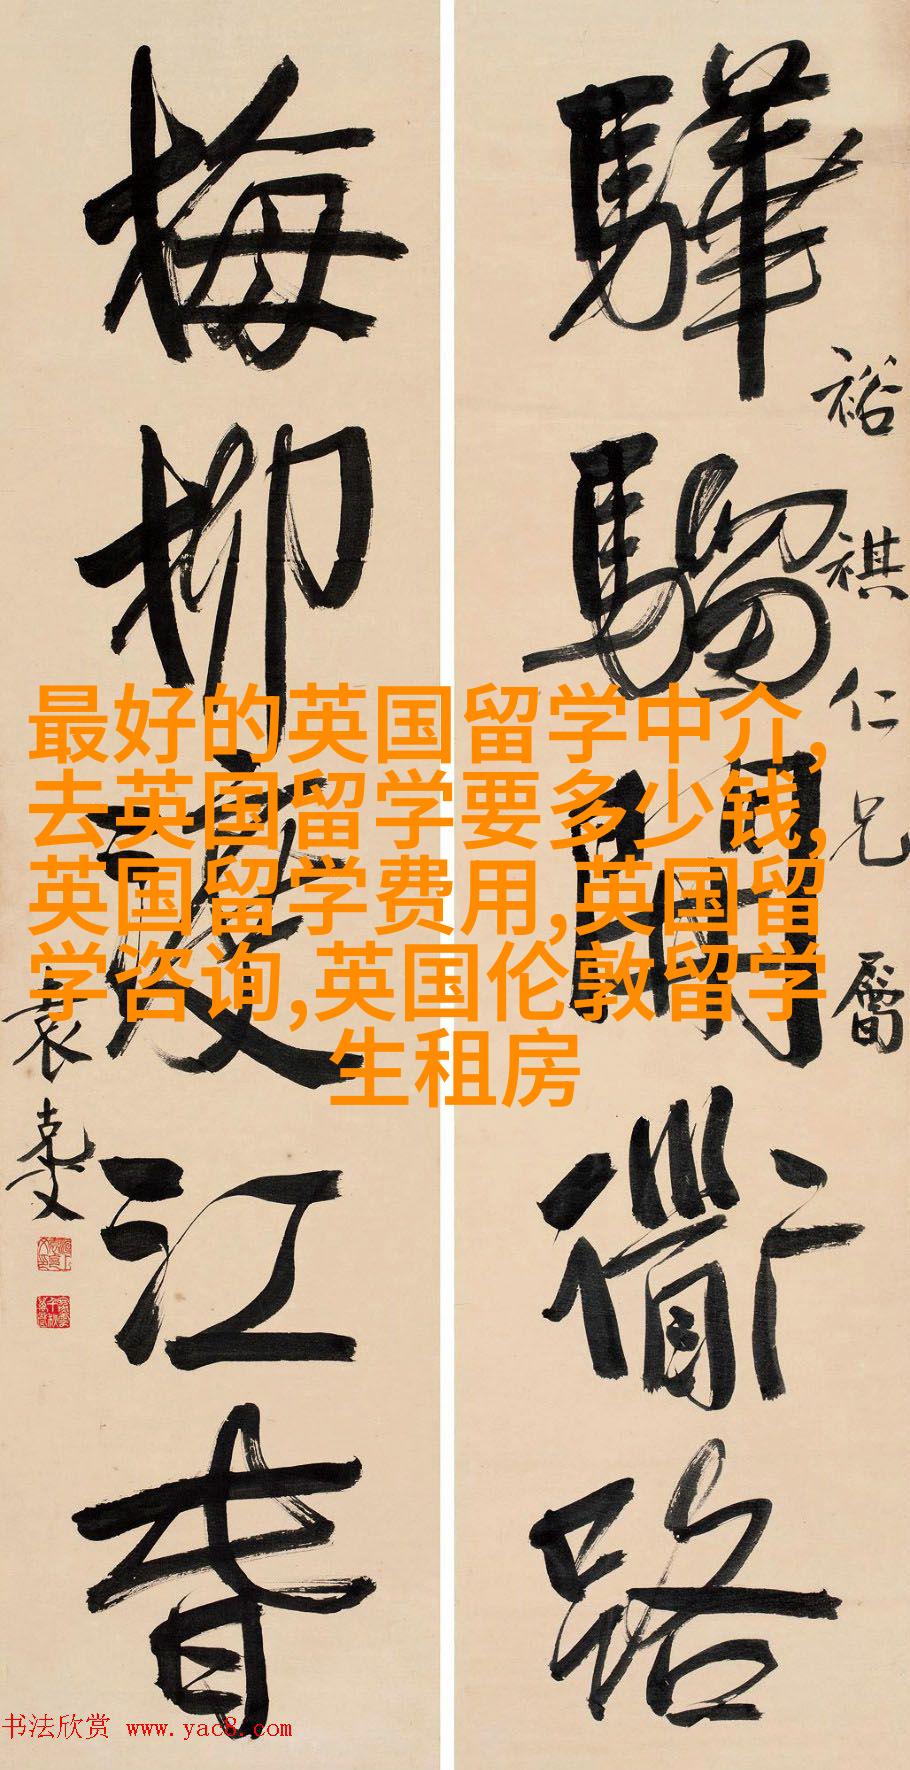 驊騮開衜路
裕祺仁兄屬
梅柳渡江春
袁克文
最好的英国留学中介,
去英国留学要多少钱,
英国留学费用,英国留
学咨询,英国伦敦留学
生租房
书法欣赏 www.yac8.com